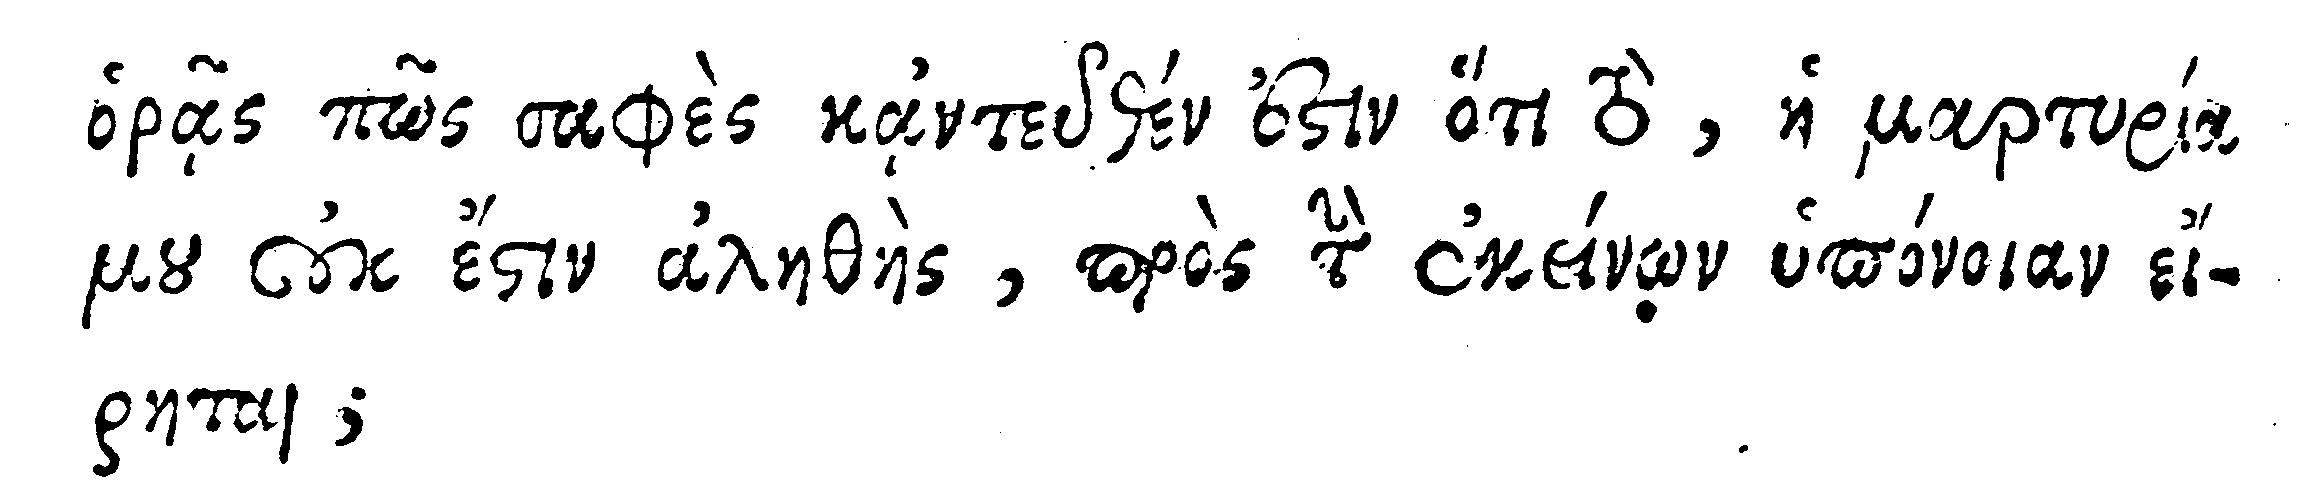 ὁρᾷς πῶς σαφὲς κᾀντευθέν ἐστιν ὅτι τὸ, ἡ μαρτυρία
μου οὐκ ἔστιν ἀληθὴς, πρὸς τὴν ἐκείνῳν ὑπόνοιαν εἴ-
ρηται;